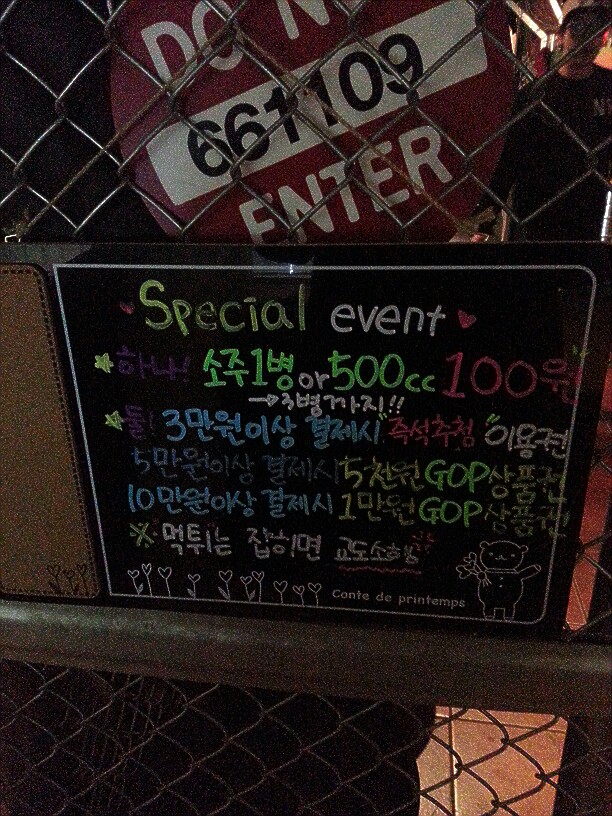 DO NOT
661109
ENTER
Special event
하나! 소주1병 or 500cc 100원
→3병까지!!
둘! 3만원이상 결제시 즉석추첨 이용권
5만원이상 결제시 5천원 GOP상품권
10만원이상 결제시 1만원 GOP상품권
※ 먹튀는 잡히면 교도소행
Conte de printemps